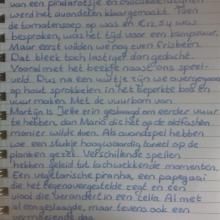 van een pindarotsje en
werd het avondeten klaargemaakt. Toen
de tomatensoep op was en
besproken, was het tijd voor een kampvuur.
Maar eerst wilden we nog even frisbeeën.
Dat bleek toch lastiger dan gedacht.
Vooral met het beekje naast ons speel-
veld. Dus na een uurtje zijn we overgegaan
op hout sprokkelen in het beperkte bos en
vuur maken. Met de vuurbom van
Martijn is Jelle erin geslaagd om eerder vuur
te hebben, dan Mard die het op de
manier wilde doen. Als avondspel hebben
we een stukje hoogwaardig toneel op de
planken gezet. Verschillende spellen
hebben geleid tot lachwekkende momenten.
Een vegetarische piranha, een papegaai
die het tegenovergestelde zegt en een
viool die verandert in een cello. Al met
al een geslaagde, maar tevens ook een
vermoeiende dag.